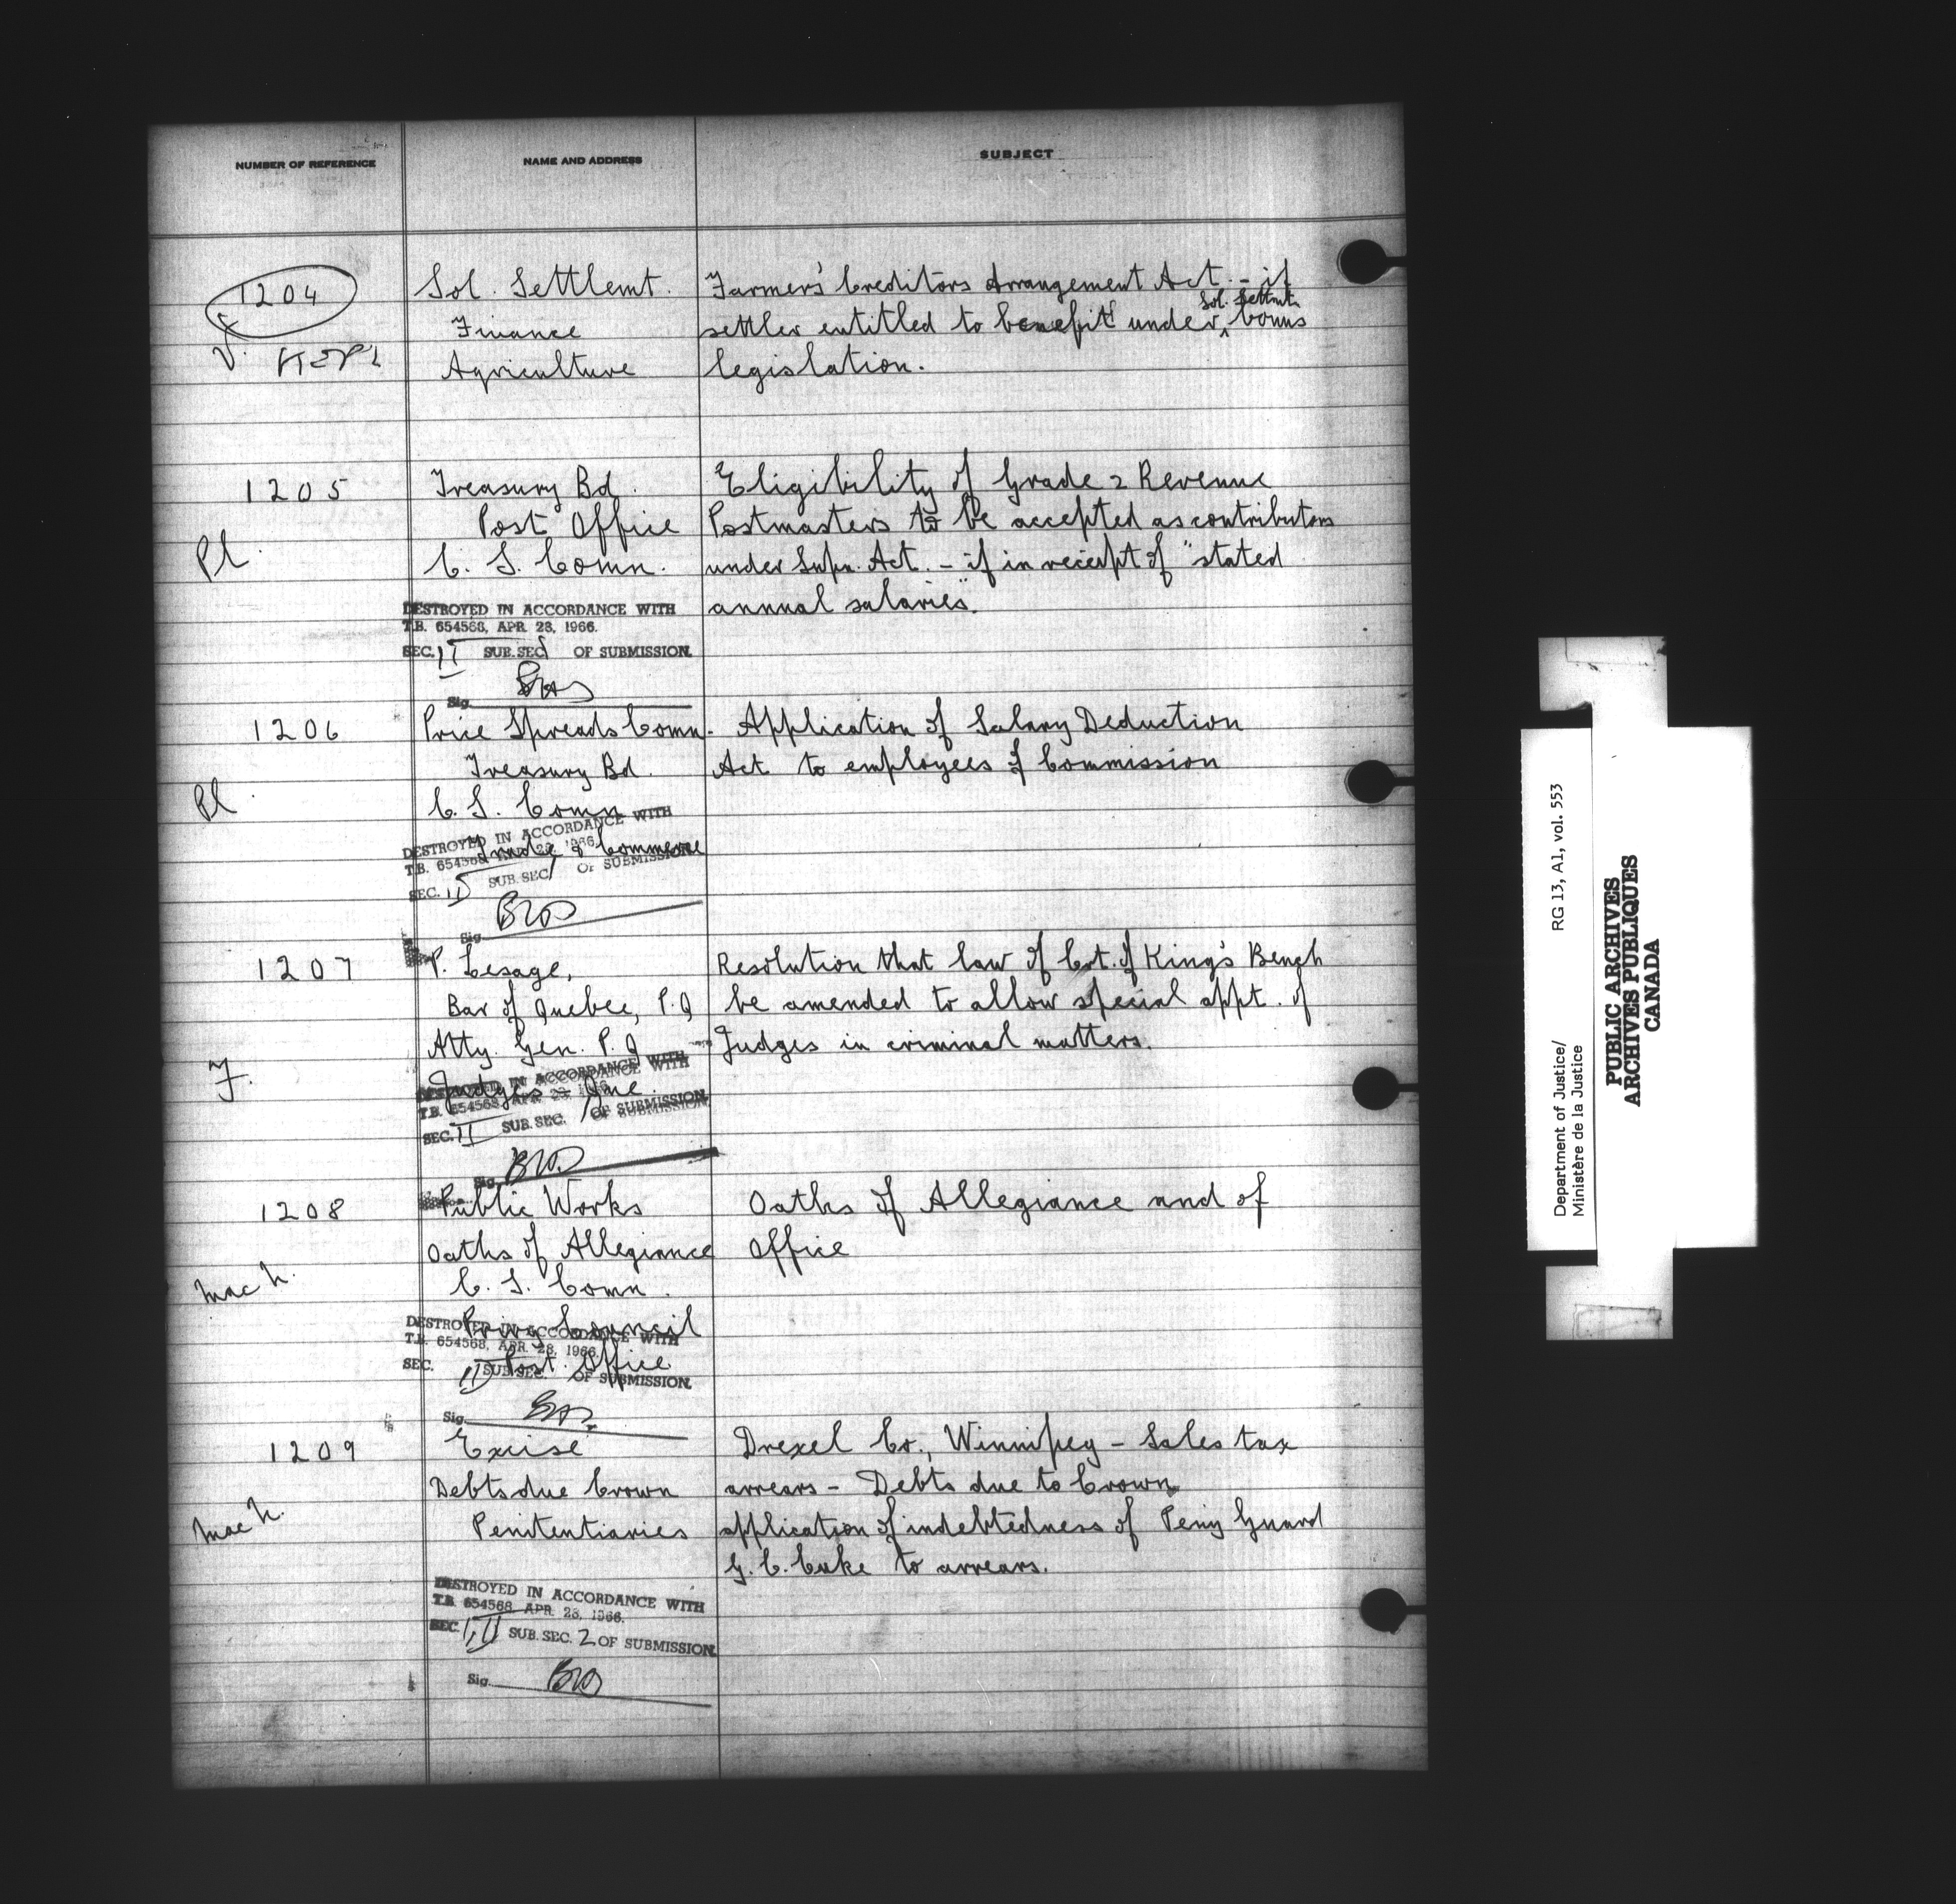 NUMBER OF REFERENCE NAME AND ADDRESS SUBJECT
1204 Sol. Settlemt. Farmers' Creditors Arrangement Act. - if
Finance settler entitled to benefit under ^ Sol. Settmt. bonus
V. KEPT Agriculture legislation.
1205 Treasury Bd. Eligibility of Grade 2 Revenue
Post Office Postmasters to be accepted as contributors
Pl. C. S. Comn. under Supn. Act. - if in receipt of "stated
annual salaries".
DESTROYED IN ACCORDANCE WITH
T.B. 654568, APR. 28, 1966.
SEC. 11 SUB. SEC. OF SUBMISSION.
Sig.
1206 Price Spreads Comn. Application of Salary Deduction
Treasury Bd. Act to employees of Commission
Pl. C. S. Comn.
Trade & Commerce
DESTROYED IN ACCORDANCE WITH
T.B. 654568, APR. 28, 1966.
SEC. 11 SUB. SEC. 1 OF SUBMISSION.
Sig.
1207 P. Lesage, Resolution that law of Crt. of King's Bench
Bar of Quebec, P.Q be amended to allow special appt. of
Atty. Gen. P.Q Judges in criminal matters.
F. Judges - Que.
DESTROYED IN ACCORDANCE WITH
T.B. 654568, APR. 28, 1966.
SEC. 11 SUB. SEC. 1 OF SUBMISSION.
Sig.
1208 Public Works Oaths of Allegiance and of
Oaths of Allegiance Office
Mac N. C. S. Comn.
Privy Council
Post Office
DESTROYED IN ACCORDANCE WITH
T.B. 654568, APR. 28, 1966.
SEC. 11 SUB. SEC. OF SUBMISSION.
Sig.
1209 Excise Drexel Co., Winnipeg - Sales tax
Debts due Crown arrears - Debts due to Crown
Mac N. Penitentiaries application of indebtedness of Peny Guard
G. C. Cuke to arrears.
DESTROYED IN ACCORDANCE WITH
T.B. 654568 APR. 28, 1966.
SEC. 11 SUB. SEC. 2 OF SUBMISSION.
Sig.
Department of Justice/ RG 13, A1, vol. 553
Ministère de la Justice
PUBLIC ARCHIVES
ARCHIVES PUBLIQUES
CANADA